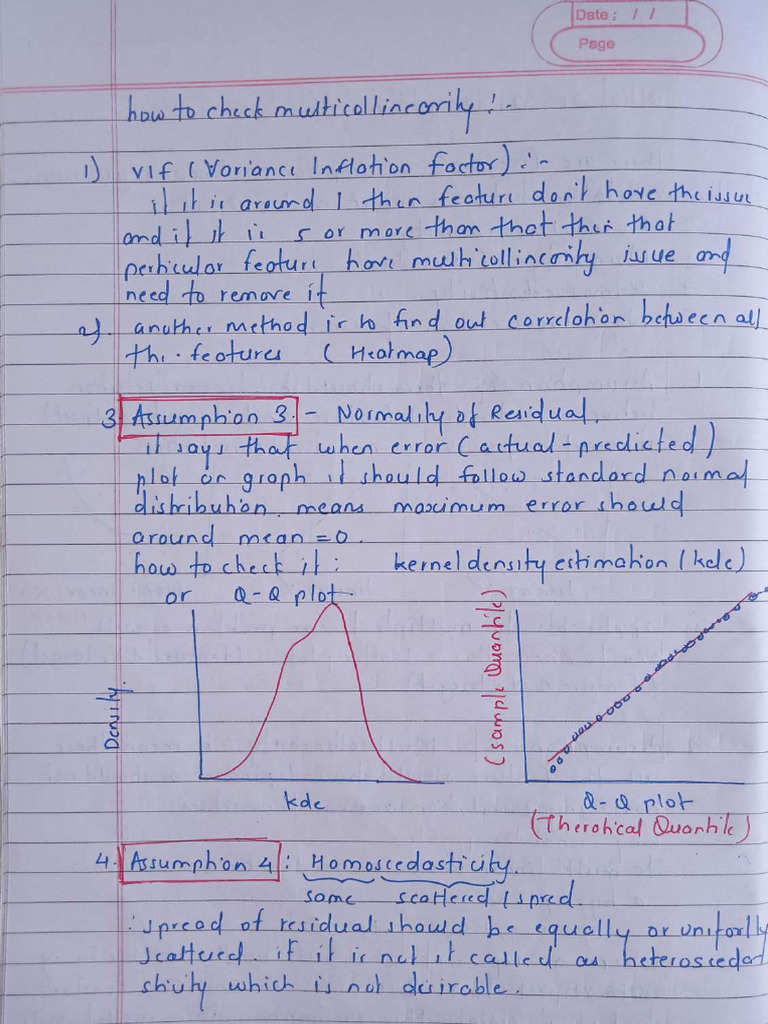 Date : / /
Page
how to check multicollinearity :-
1) VIF (Variance Inflation Factor) :-
if it is around 1 then feature don't have the issue
and if it is 5 or more than that then that
perticular feature have multicollinearity issue and
need to remove it
2) another method is to find out correlation between all
the features (Heatmap)
3 Assumption 3. - Normality of Residual.
it says that when error (actual-predicted)
plot on graph it should follow standard normal
distribution. means maximum error should
around mean = 0.
how to check it : kernel density estimation (kde)
or Q-Q plot.
Density.
(sample Quantile)
kde
Q-Q plot
(Therotical Quantile)
4. Assumption 4 : Homoscedasticity.
same scattered / spred.
: spread of residual should be equally or uniforlly
scattered. if it is not it called as heteroscedast
sticity which is not desirable.